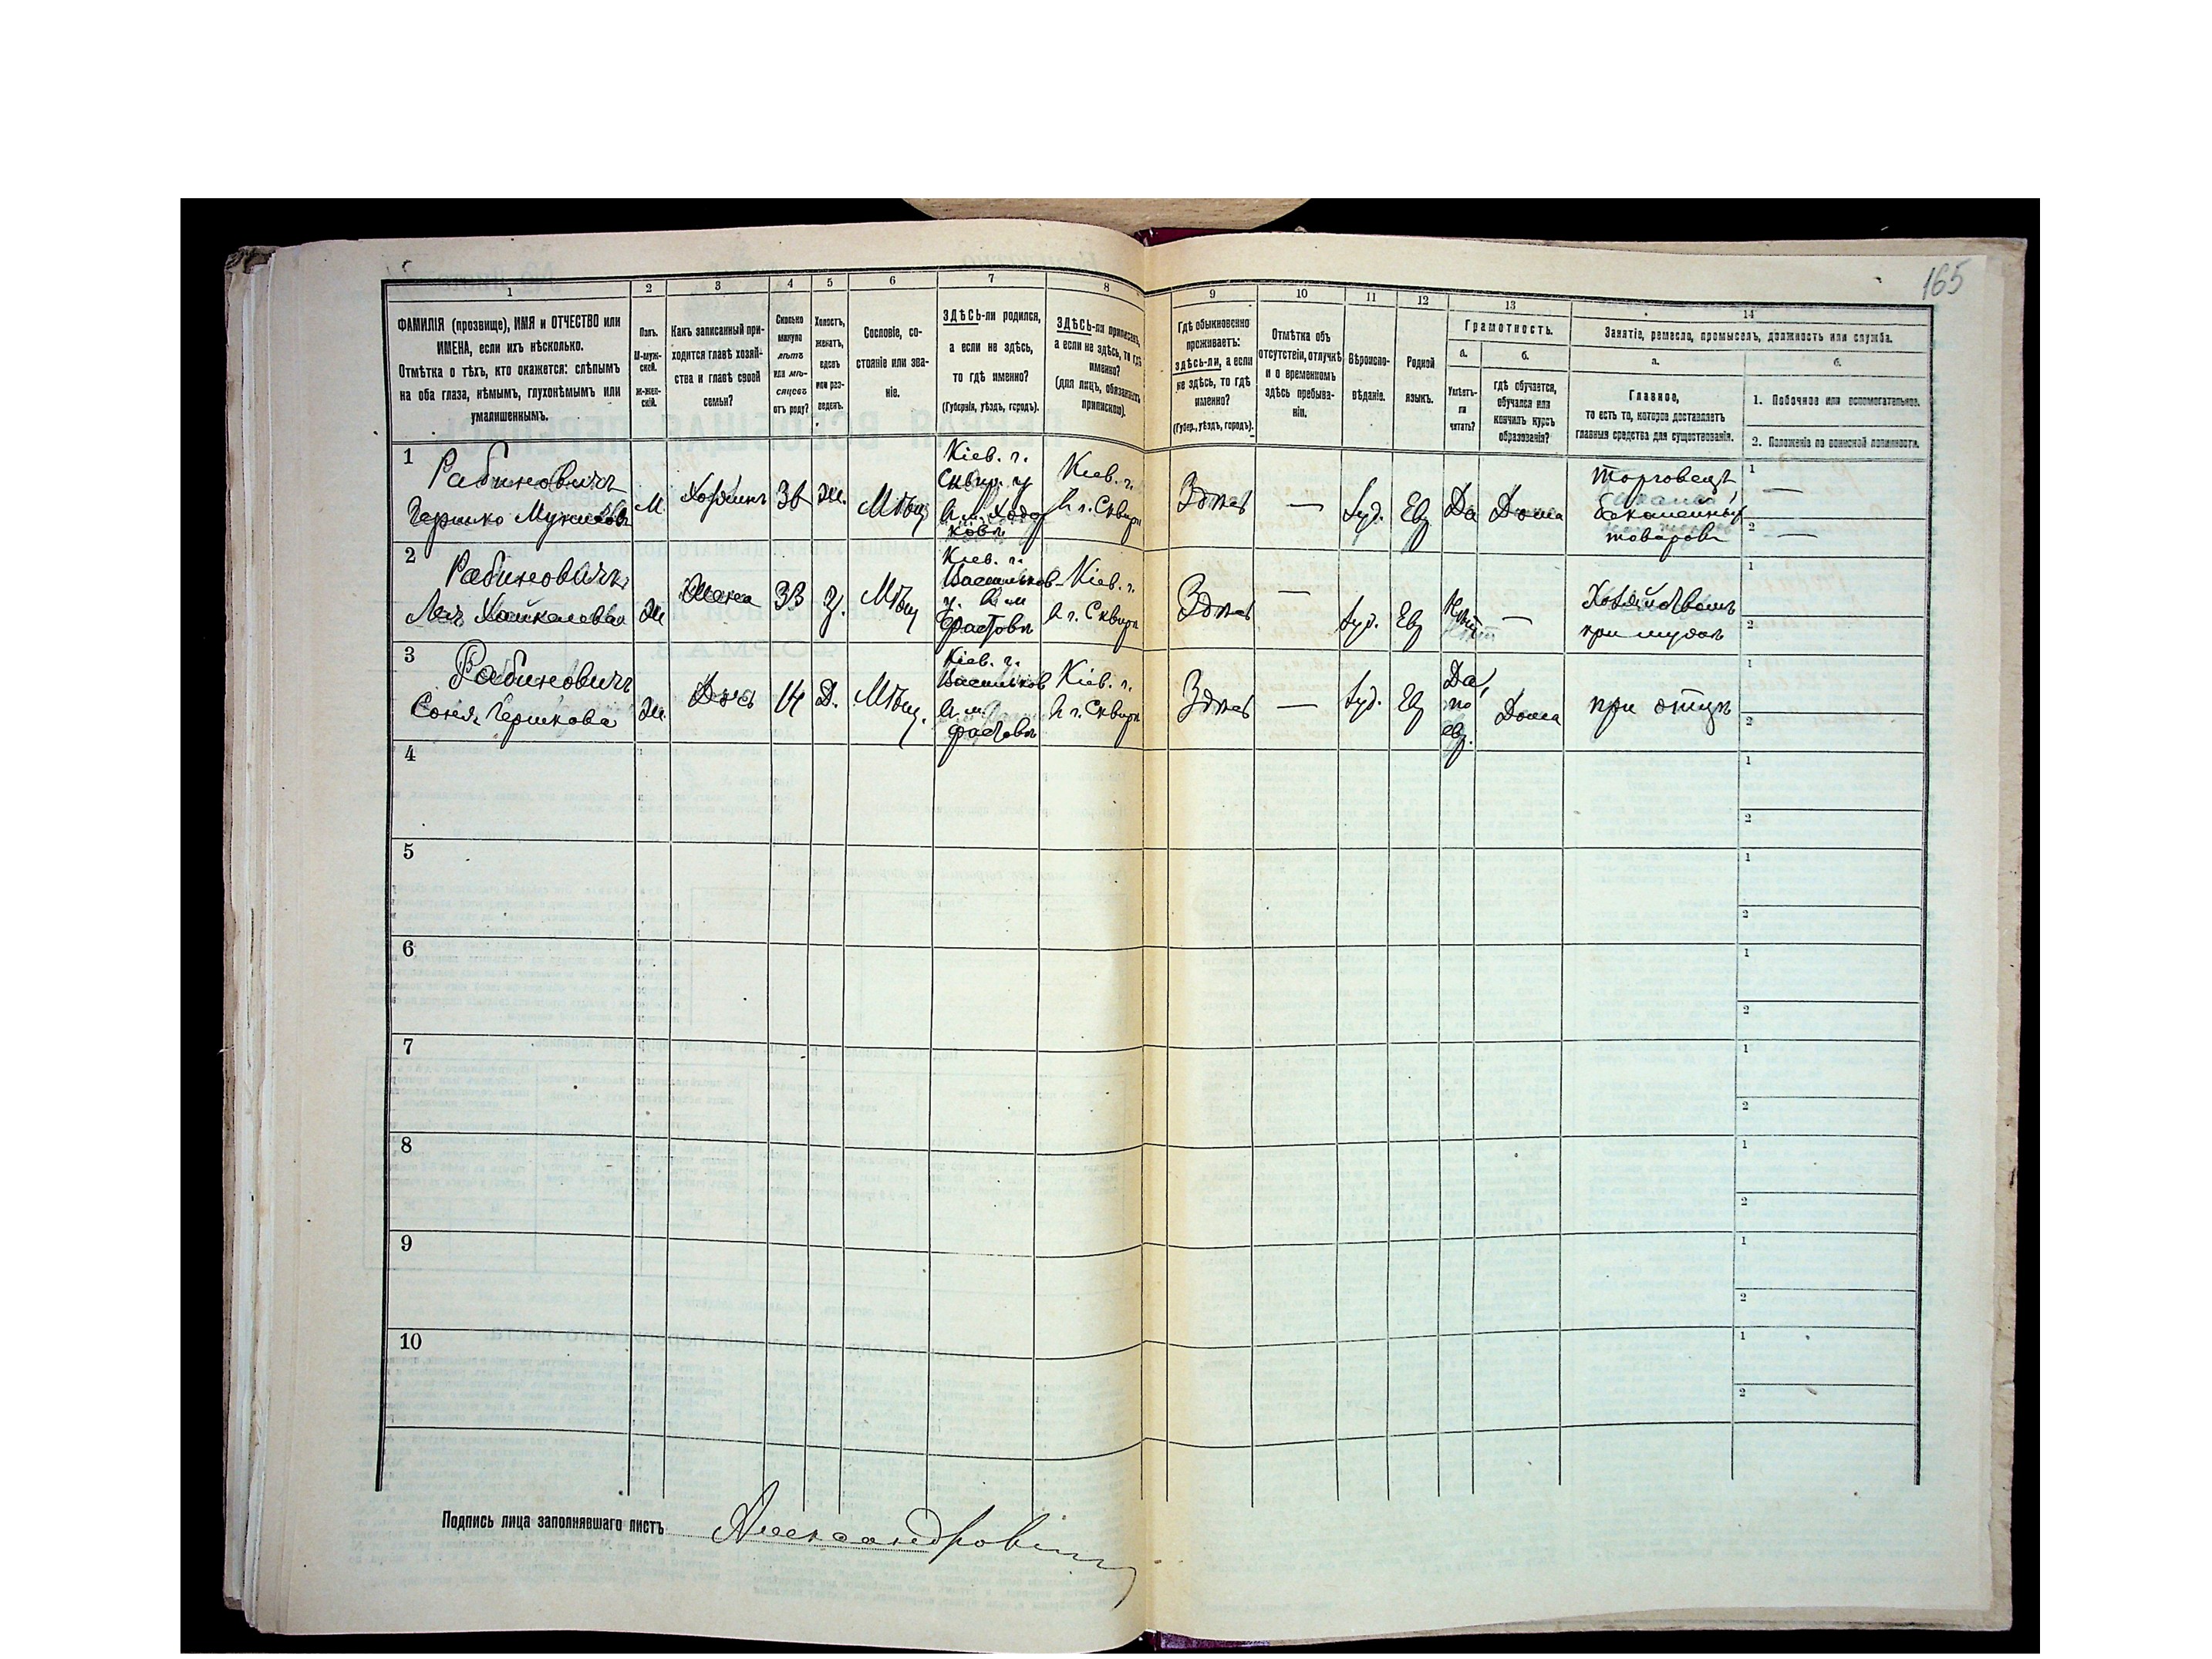 165
1 2 3 4 5 6 7 8 9 10 11 12 13 14
ФАМИЛІЯ (прозвище), ИМЯ и ОТЧЕСТВО или
ИМЕНА, если ихъ нѣсколько.
Отмѣтка о тѣхъ, кто окажется: слѣпымъ
на оба глаза, нѣмымъ, глухонѣмымъ или
умалишеннымъ.
Полъ.
М-муж-
ской.
Ж-жен-
скій.
Какъ записанный при-
ходится главѣ хозяй-
ства и главѣ своей
семьи?
Сколько
минуло
лѣтъ
или мѣ-
сяцевъ
отъ роду?
Холостъ,
женатъ,
вдовъ
или раз-
веденъ.
Сословіе, со-
стояніе или зва-
ніе.
ЗДѢСЬ-ли родился,
а если не здѣсь,
то гдѣ именно?
(Губернія, уѣздъ, городъ).
ЗДѢСЬ-ли приписанъ,
а если не здѣсь, то гдѣ
именно?
(для лицъ, обязанныхъ
припискою).
Гдѣ обыкновенно
проживаетъ:
здѣсь-ли, а если
не здѣсь, то гдѣ
именно?
(Губер., уѣздъ, городъ).
Отмѣтка объ
отсутствіи, отлучкѣ
и о временномъ
здѣсь пребыва-
ніи.
Вѣроиспо-
вѣданіе.
Родной
языкъ.
Грамотность.
а.
Умѣетъ-
ли
читать?
б.
гдѣ обучается,
обучался или
кончилъ курсъ
образованія?
Занятіе, ремесло, промыселъ, должность или служба.
а.
Главное,
то есть то, которое доставляетъ
главныя средства для существованія.
б.
1. Побочное или вспомогательное.
2. Положеніе по воинской повинности.
1
Рабиновичъ
Гершко
М.
Хозяинъ
Ж.
Мѣщ
Кіев. г.
Сквир. у
Кіев. г.
Здѣсь
—
Іуд.
Евр
Да
Дома
торговецъ
бакалейных
товаровъ
1 —
2 —
2
Рабиновичъ
Лея
Ж
Жена
33
З.
Мѣщ
Кіев. г.
Васильков-
у.
Фастовъ
Кіев. г.
Здѣсь
—
Іуд.
Евр
Нѣтъ
—
Хозяйством
при мужѣ
1
2
3
Рабиновичъ
Соня Гершкова
Ж.
Дочь
14
Д.
Мѣщ.
Кіев. г.
Васильков
Фастовъ
Кіев. г.
Здѣсь
—
Іуд.
Евр
Да,
по
евр.
Дома
при отцѣ
1
2
4
1
2
5
1
2
6
1
2
7
1
2
8
1
2
9
1
2
10
1
2
Подпись лица заполнявшаго листъ Александрович